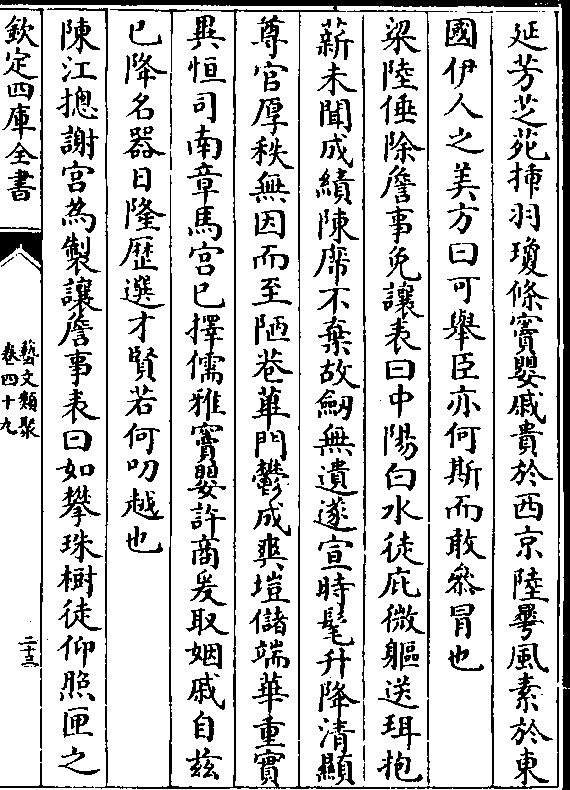 延芳芝苑插羽瓊條竇嬰戚貴於西京陸曄風素於東
國伊人之美方曰可舉臣亦何斯而敢叅冒也
梁陸倕除詹事免讓表曰中陽白水徒庇微軀送珥抱
薪未聞成績陳席不棄故劒無遺遂宣時髦升降清顯
尊官厚秩無因而至陋巷蓽門鬱成爽塏儲端華重實
異恒司南章馬宫已擇儒雅竇嬰許商爰取姻戚自兹
已降名器日隆歴選才賢若何叨越也
陳江摠謝宫為製讓詹事表曰如攀珠樹徒仰照匣之
欽定四庫全書
藝文類聚
卷四十九
二十三